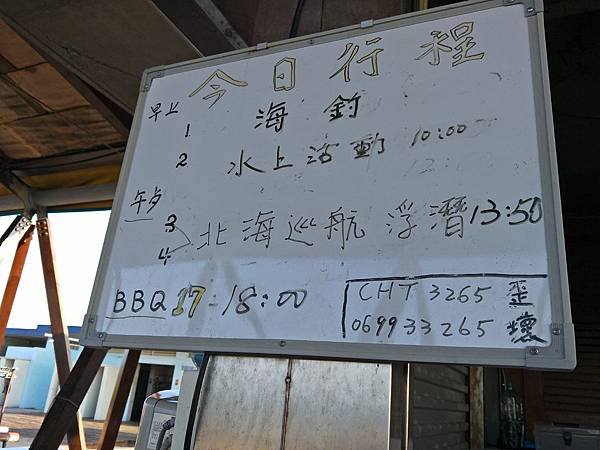 今日行程
早上
1 海釣
2 水上活動 10:00
午后
3
4 北海巡航 浮潛 13:50
BBQ 17-18:00
CHT 3265 歪
0699 33265 壞